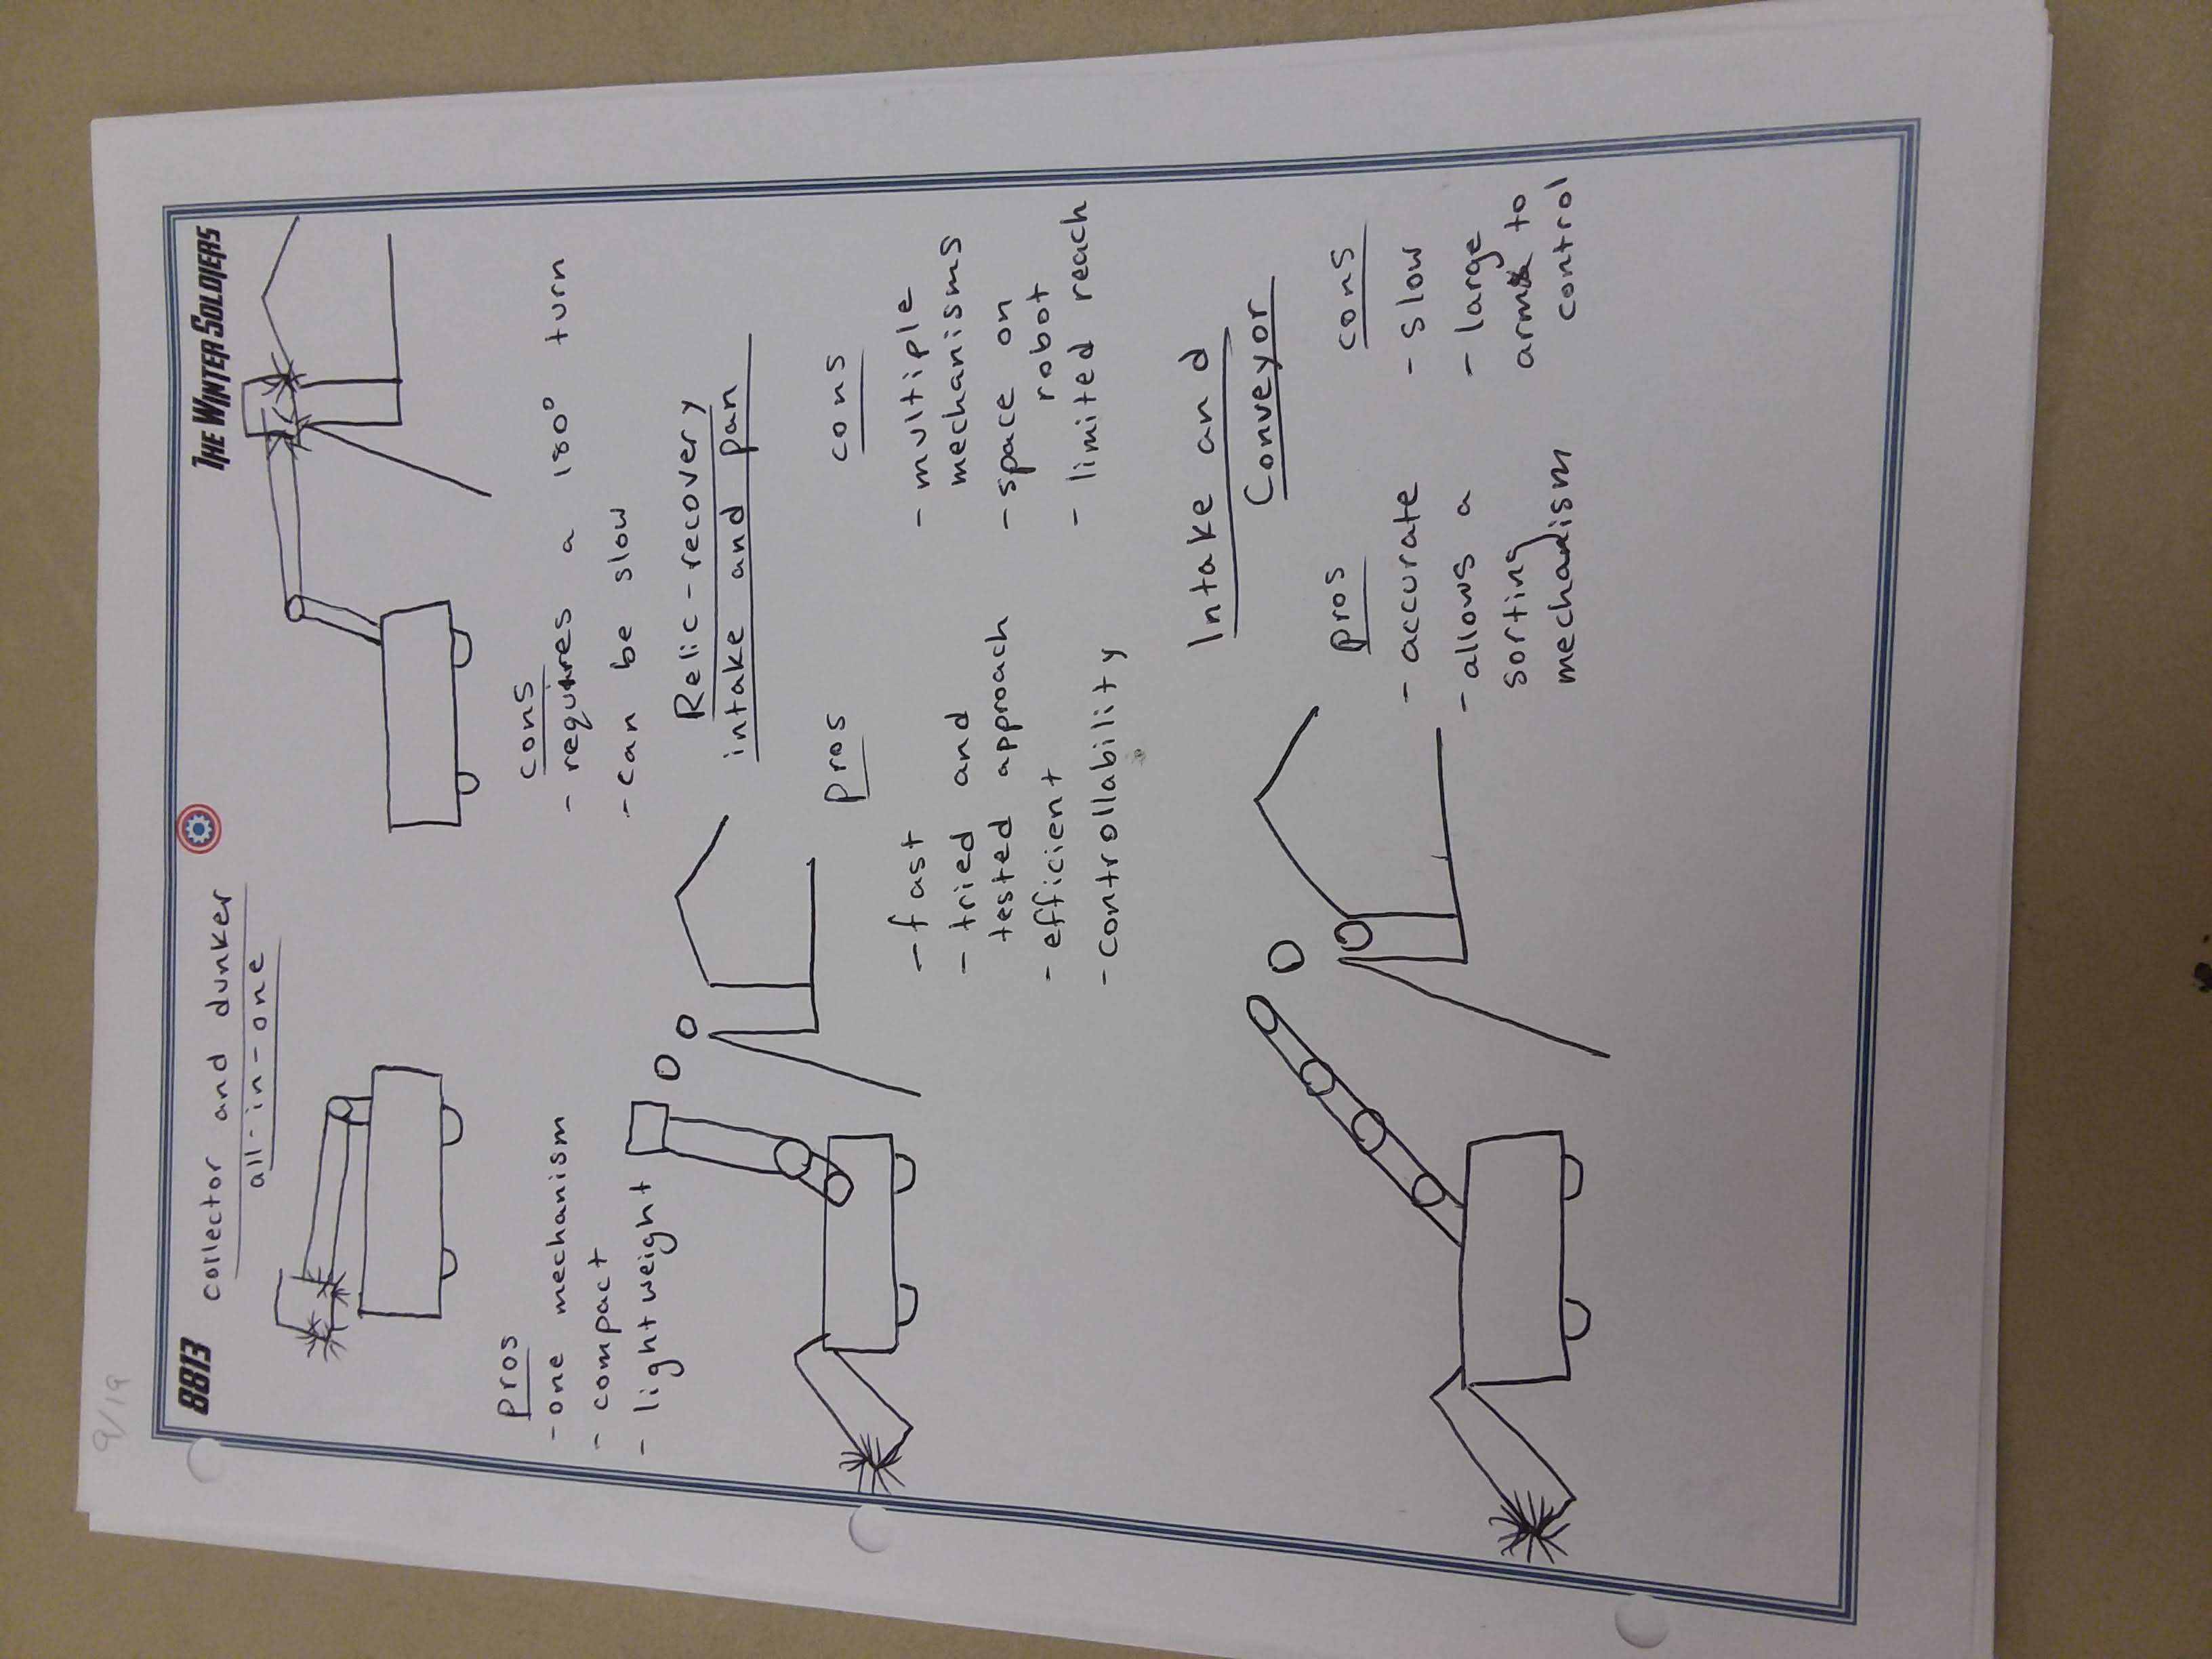 9/19
8813
THE WINTER SOLDIERS
collector and dunker
all-in-one
pros
- one mechanism
- compact
- lightweight
cons
- requires a 180° turn
- can be slow
Relic-recovery
intake and pan
pros
- fast
- tried and
tested approach
- efficient
- controllability
cons
- multiple
mechanisms
- space on
robot
- limited reach
Intake and
Conveyor
pros
- accurate
- allows a
sorting
mechanism
cons
- slow
- large
arm to
control